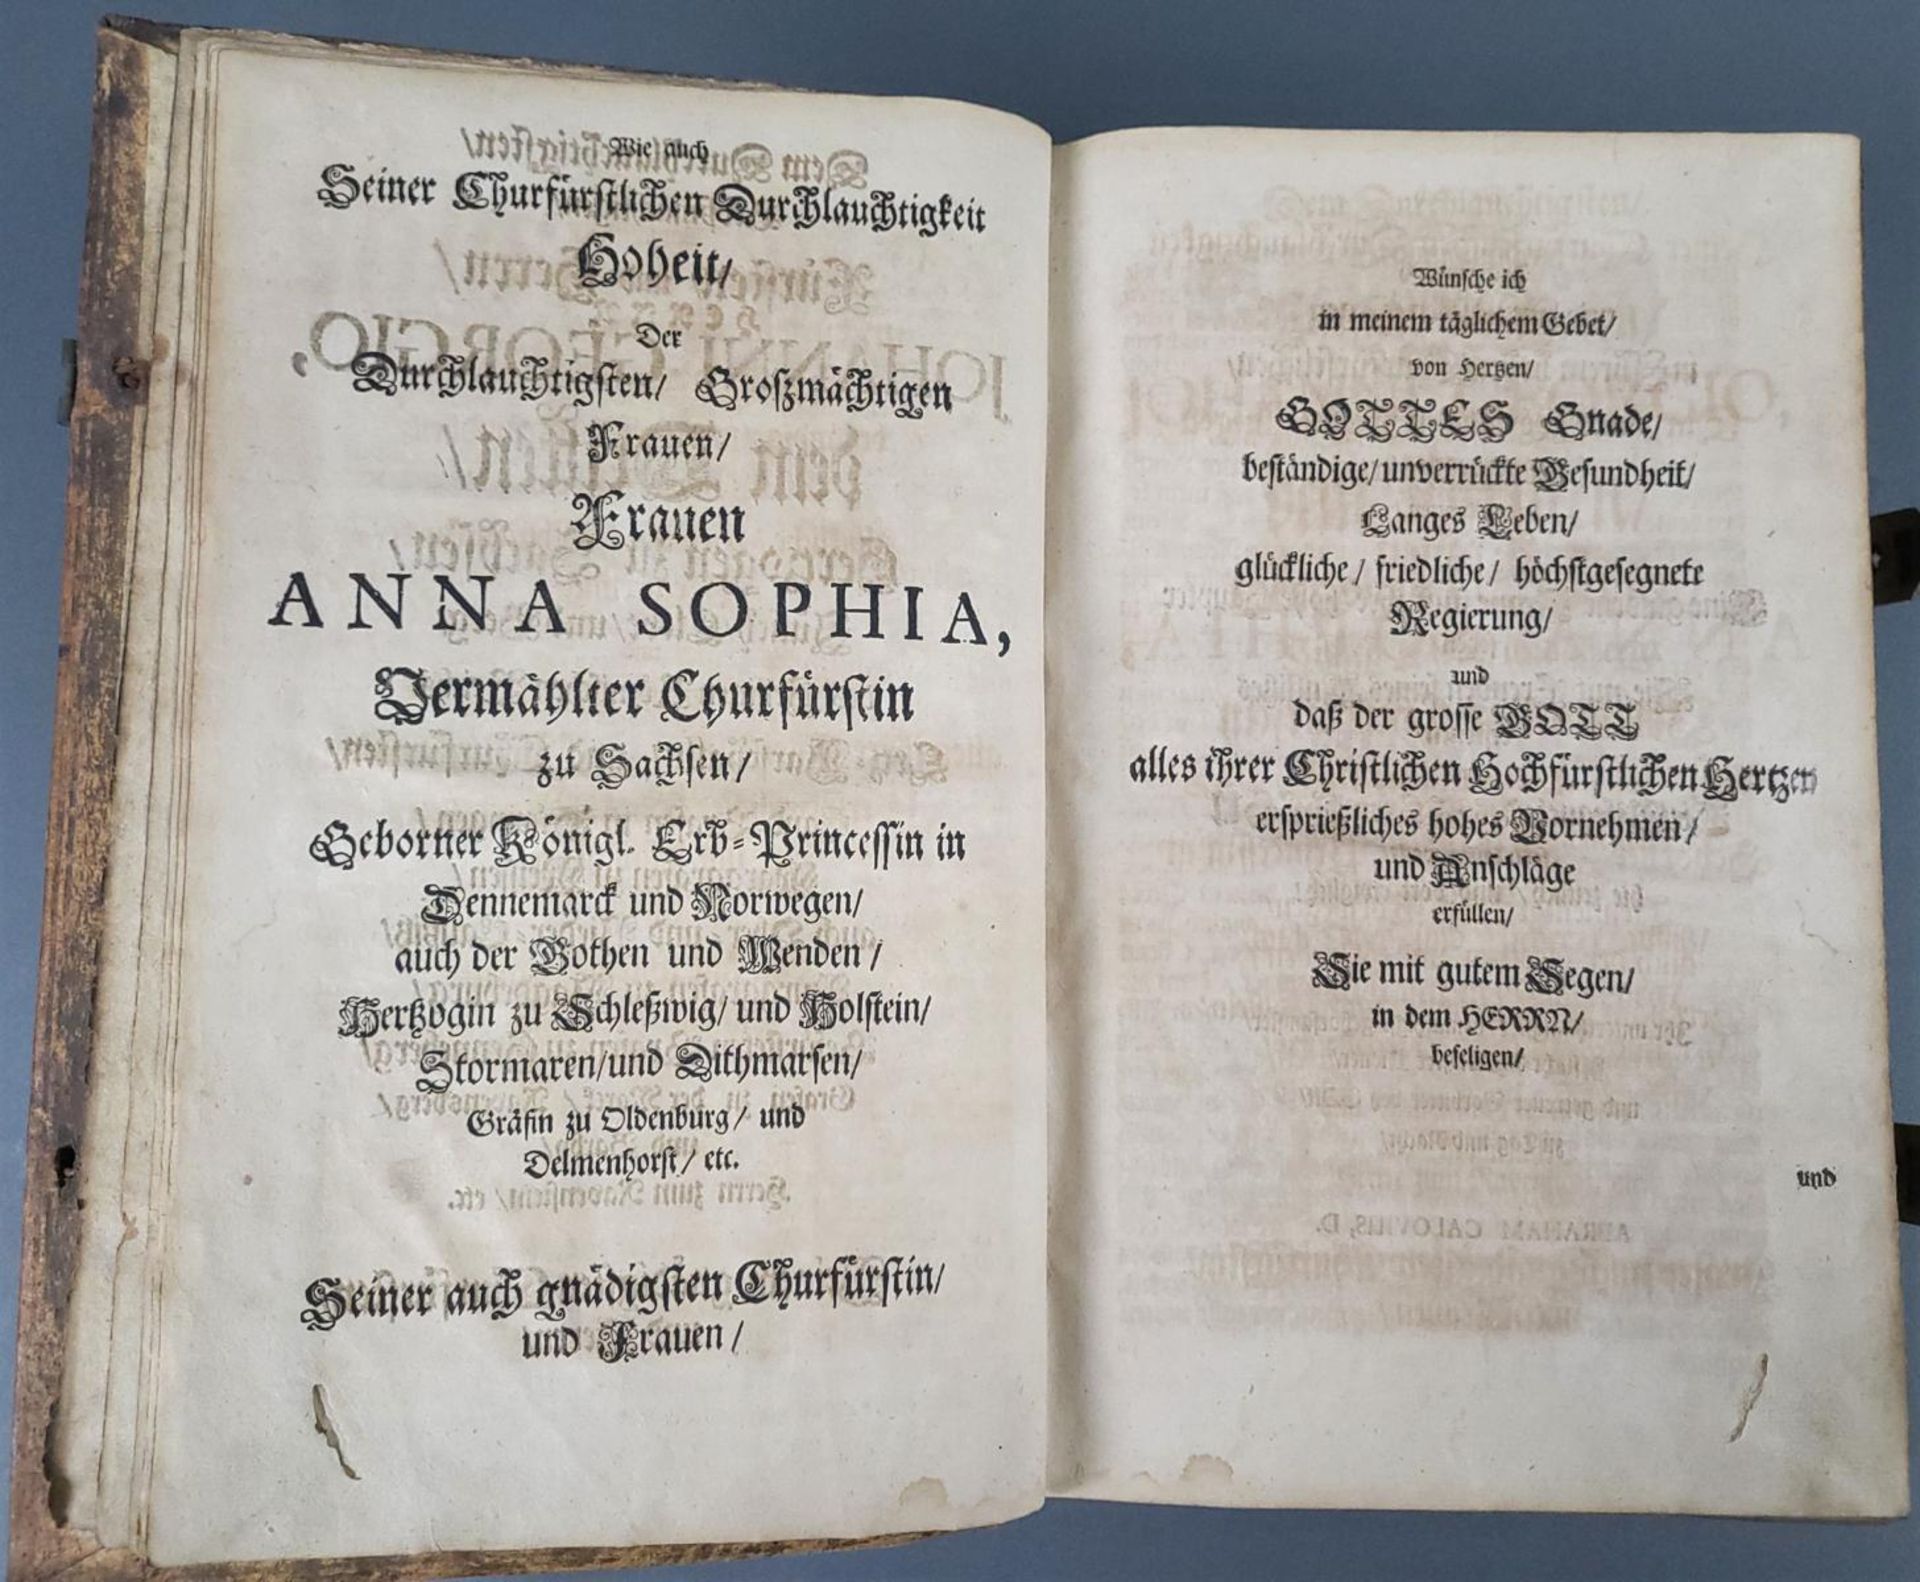 Wie auch
Seiner Churfürstlichen Durchlauchtigkeit
Hoheit/
Der
Durchlauchtigsten/ Großmächtigen
Frauen/
Frauen
ANNA SOPHIA,
Vermählter Churfürstin
zu Sachsen/
Geborner Königl. Erb-Princessin in
Dennemarck und Norwegen/
auch der Gothen und Wenden/
Hertzogin zu Schleßwig/ und Holstein/
Stormaren/und Dithmarsen/
Gräfin zu Oldenburg/ und
Delmenhorst/ etc.
Seiner auch gnädigsten Churfürstin/
und Frauen/
Wünsche ich
in meinem täglichem Gebet/
von Hertzen/
GOTTES Gnade/
beständige/unverrückte Gesundheit/
Langes Leben/
glückliche/ friedliche/ höchstgesegnete
Regierung/
und
daß der grosse GOTT
alles ihrer Christlichen Hochfürstlichen Hertzen
ersprießliches hohes Vornehmen/
und Anschläge
erfüllen/
Sie mit gutem Segen/
in dem HERRN/
beseligen/
und